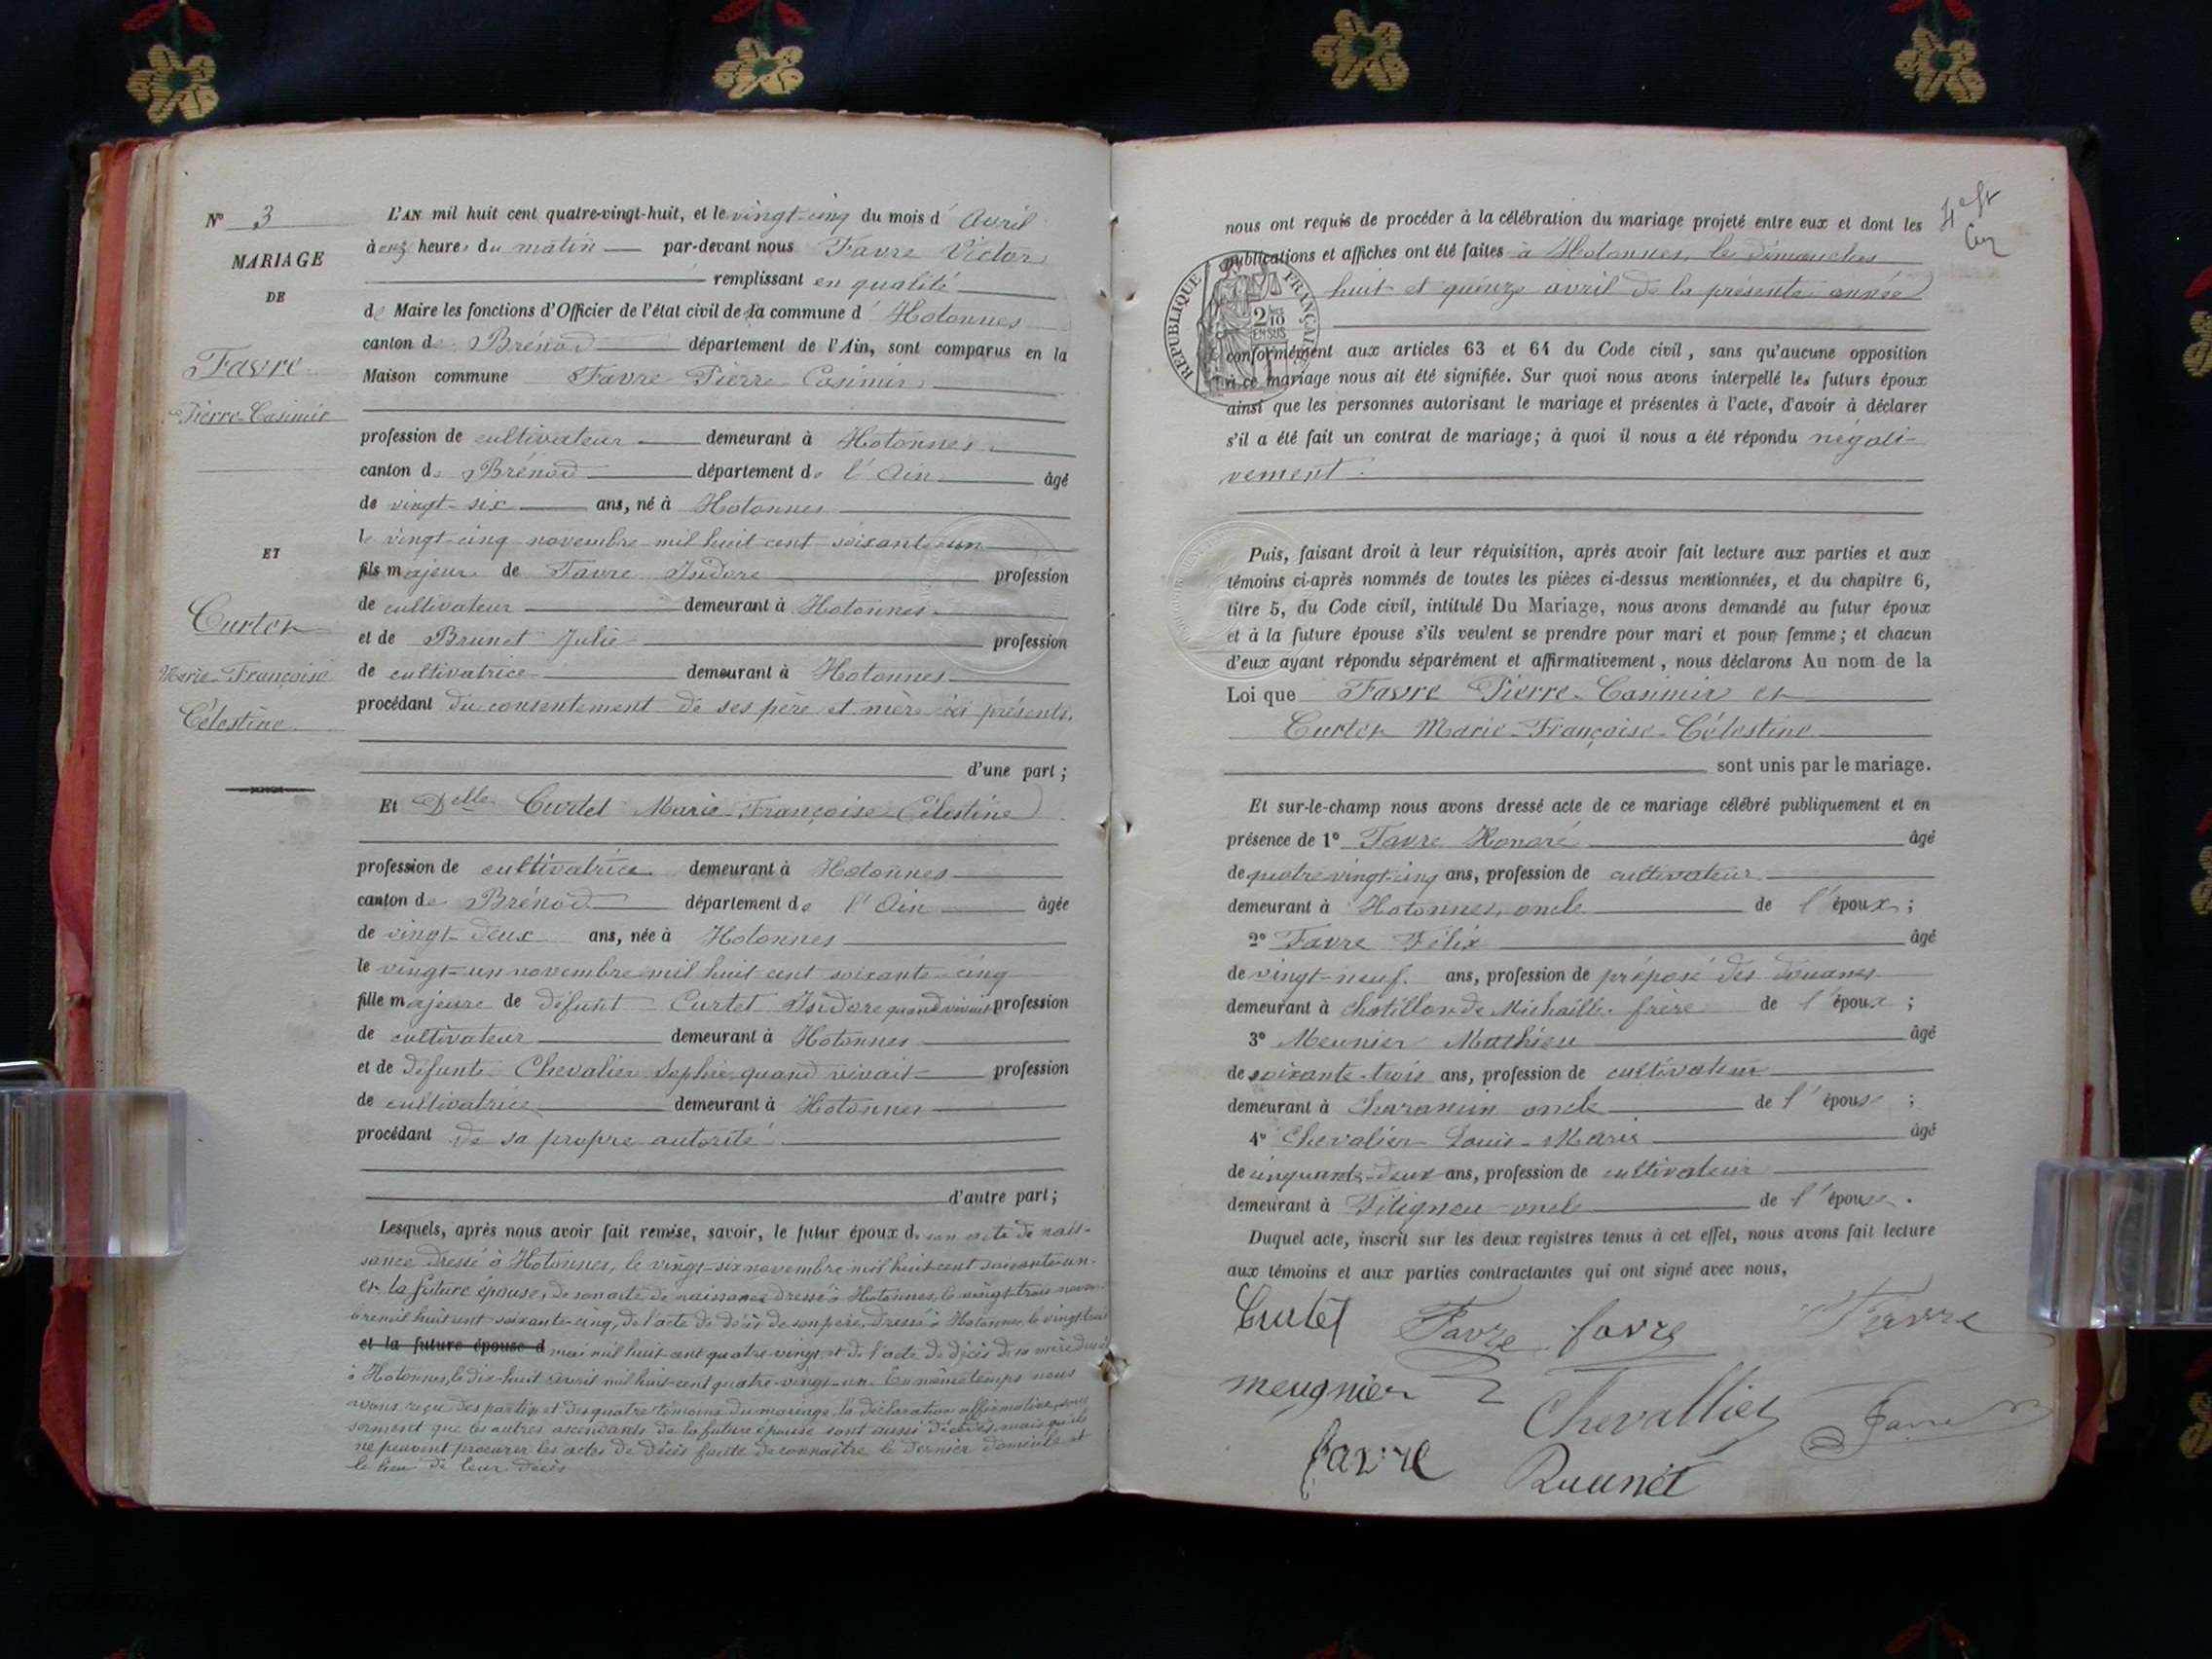 N° 3
MARIAGE
DE
Favre
Pierre-Casimir
ET
Curtet
Marie-Françoise
Célestine
L'AN mil huit cent quatre-vingt-huit, et le vingt-cinq du mois d'Avril
à onze heures du matin par-devant nous Favre Victor
remplissant en qualité
de Maire les fonctions d'Officier de l'état civil de la commune d'Hotonnes
canton de Brénod département de l'Ain, sont comparus en la
Maison commune Favre Pierre Casimir
profession de cultivateur demeurant à Hotonnes
canton de Brénod département de l'Ain âgé
de vingt-six ans, né à Hotonnes
le vingt-cinq novembre mil huit cent soixante-un
fils majeur de Favre Isidore profession
de cultivateur demeurant à Hotonnes
et de Brunet Julie profession
de cultivatrice demeurant à Hotonnes
procédant du consentement de ses père et mère ici présents.
d'une part;
Et Delle Curtet Marie-Françoise-Célestine
profession de cultivatrice demeurant à Hotonnes
canton de Brénod département de l'Ain âgée
de vingt-deux ans, née à Hotonnes
le vingt-un novembre mil huit cent soixante-cinq
fille majeure de défunt Curtet Isidore quand vivait profession
de cultivateur demeurant à Hotonnes
et de défunte Chevalier Sophie quand vivait profession
de cultivatrice demeurant à Hotonnes
procédant de sa propre autorité
d'autre part;
Lesquels, après nous avoir fait remise, savoir, le futur époux de son acte de nais-
sance dressé à Hotonnes, le vingt-six novembre mil huit cent soixante-un.
et la future épouse, de son acte de naissance dressé à Hotonnes, le vingt-trois novem-
bre mil huit cent soixante-cinq, de l'acte de décès de son père, dressé à Hotonnes le vingt trois
et la future épouse d mai mil huit cent quatre-vingt, et de l'acte de décès de sa mère dressé
à Hotonnes, le dix-huit avril mil huit cent quatre-vingt-un. En même temps nous
avons reçu des parties et des quatre témoins du mariage la déclaration affirmative, sous
serment que les autres ascendants de la future épouse sont aussi décédés, mais qu'ils
ne peuvent procurer les actes de décès faute de connaître le dernier domicile et
le lieu de leur décès
nous ont requis de procéder à la célébration du mariage projeté entre eux et dont les
publications et affiches ont été faites à Hotonnes, les dimanches
huit et quinze avril de la présente année
RÉPUBLIQUE FRANÇAISE
2/10 EN SUS
conformément aux articles 63 et 64 du Code civil, sans qu'aucune opposition
à ce mariage nous ait été signifiée. Sur quoi nous avons interpellé les futurs époux
ainsi que les personnes autorisant le mariage et présentes à l'acte, d'avoir à déclarer
s'il a été fait un contrat de mariage; à quoi il nous a été répondu négati-
vement.
Puis, faisant droit à leur réquisition, après avoir fait lecture aux parties et aux
témoins ci-après nommés de toutes les pièces ci-dessus mentionnées, et du chapitre 6,
titre 5, du Code civil, intitulé Du Mariage, nous avons demandé au futur époux
et à la future épouse s'ils veulent se prendre pour mari et pour femme; et chacun
d'eux ayant répondu séparément et affirmativement, nous déclarons Au nom de la
Loi que Favre Pierre-Casimir et
Curtet Marie-Françoise-Célestine
sont unis par le mariage.
Et sur-le-champ nous avons dressé acte de ce mariage célébré publiquement et en
présence de 1° Favre Honoré âgé
de quatre vingt-cinq ans, profession de cultivateur
demeurant à Hotonnes, oncle de l'époux;
2° Favre Félix âgé
de vingt-neuf ans, profession de préposé des douanes
demeurant à Chatillon de Michaille frère de l'époux;
3° Meunier Mathieu âgé
de soixante-trois ans, profession de cultivateur
demeurant à Charancin oncle de l'épouse;
4° Chevalier Louis-Marie âgé
de cinquante-deux ans, profession de cultivateur
demeurant à Fitignieu oncle de l'épouse.
Duquel acte, inscrit sur les deux registres tenus à cet effet, nous avons fait lecture
aux témoins et aux parties contractantes qui ont signé avec nous,
Curtet Favre favre Favre
meugnier Chevallier Favre
favre Brunet